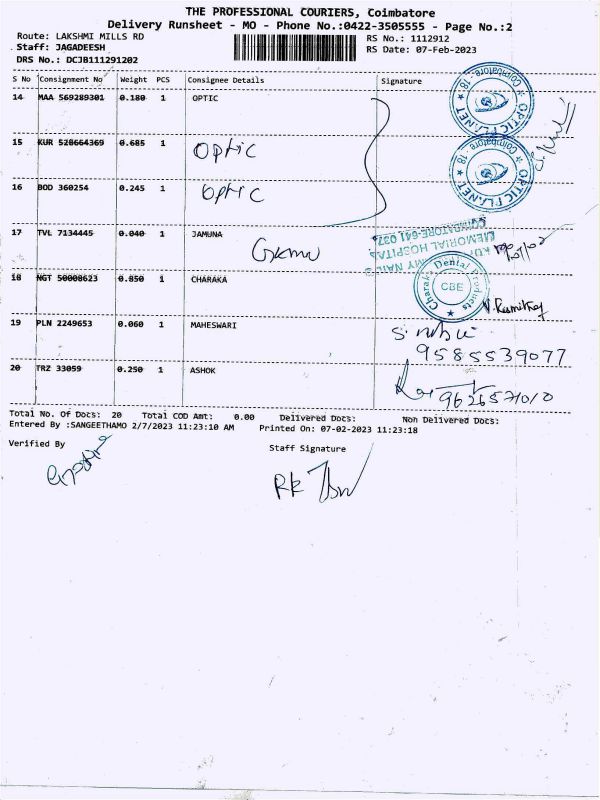 THE PROFESSIONAL COURIERS, Coimbatore
Delivery Runsheet - MO - Phone No.:0422-3505555 - Page No.:2
Route: LAKSHMI MILLS RD RS No.: 1112912
Staff: JAGADEESH RS Date: 07-Feb-2023
DRS No.: DCJB111291202
S No Consignment No Weight PCS Consignee Details Signature
14 MAA 569289301 0.180 1 OPTIC
15 KUR 528664369 0.685 1 Optic
16 BOD 360254 0.245 1 Optic
OPTIC PLANET ★ Coimbatore - 18. ★
OPTIC PLANET ★ Coimbatore - 18. ★
17 TVL 7134445 0.040 1 JAMUNA
MEMORIAL HOSPITAL
COIMBATORE-641 037
18 NGT 50008623 0.850 1 CHARAKA
Charaka Dental Products ★ CBE
19 PLN 2249653 0.060 1 MAHESWARI
9585539077
20 TRZ 33059 0.250 1 ASHOK
9626571010
Total No. Of Docs: 20 Total COD Amt: 0.00 Delivered Docs: Non Delivered Docs:
Entered By :SANGEETHAMO 2/7/2023 11:23:10 AM Printed On: 07-02-2023 11:23:18
Verified By Staff Signature